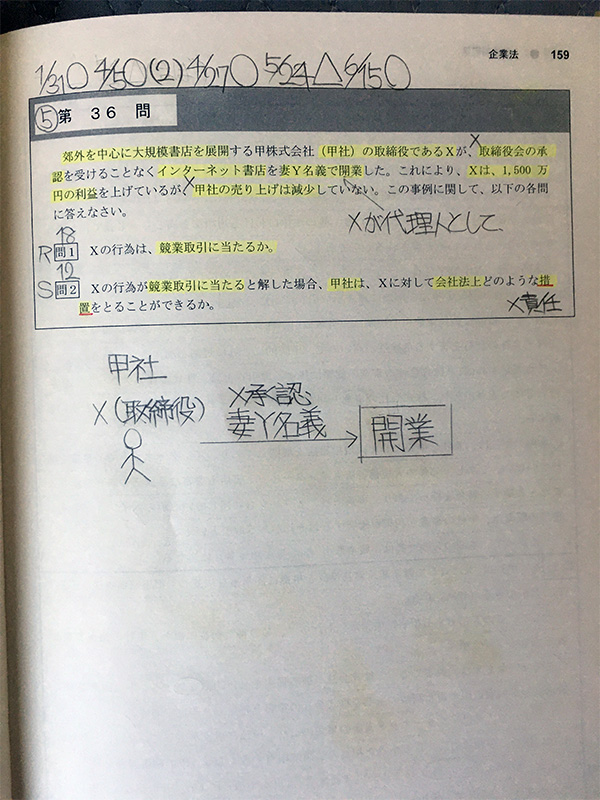 企業法 ● 159
1/31○ 4/5○(2) 4/27○ 5/24△ 6/15○
⑤第 36 問
郊外を中心に大規模書店を展開する甲株式会社(甲社)の取締役であるXが、取締役会の承
認を受けることなくインターネット書店を妻Y名義で開業した。これにより、Xは、1,500 万
円の利益を上げているが、甲社の売り上げは減少していない。この事例に関して、以下の各問
に答えなさい。
Xが代理人として、
18
R 問1 Xの行為は、競業取引に当たるか。
12
S 問2 Xの行為が競業取引に当たると解した場合、甲社は、Xに対して会社法上どのような措
置をとることができるか。
×責任
甲社
X(取締役)
×承認
妻Y名義
開業